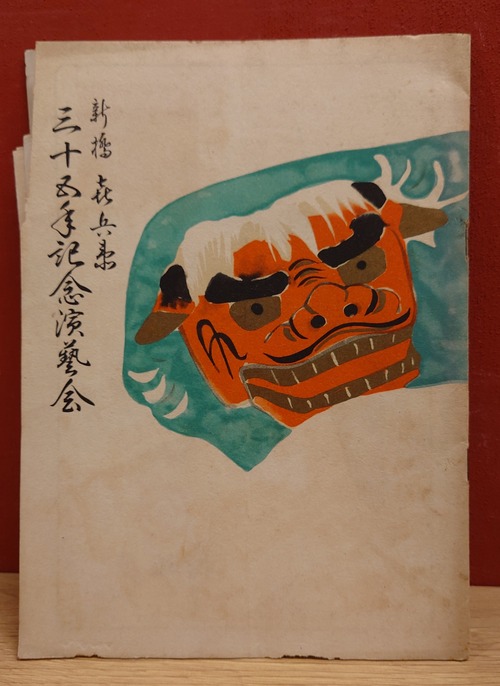 新橋 喜兵衛
三十五年記念演藝会